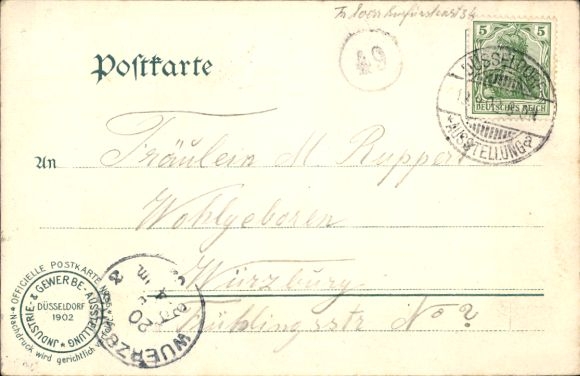 49
5 5
DEUTSCHES REICH
DÜSSELDORF
AUSSTELLUNG
Postkarte
An Fräulein M Ruppert
Wohlgeboren
Würzburg
Frühlingsstr No ?
OFFICIELLE POSTKARTE
INDUSTRIE- & GEWERBE-AUSSTELLUNG
DÜSSELDORF
1902
Nachdruck wird gerichtlich verfolgt
WUERZB
20